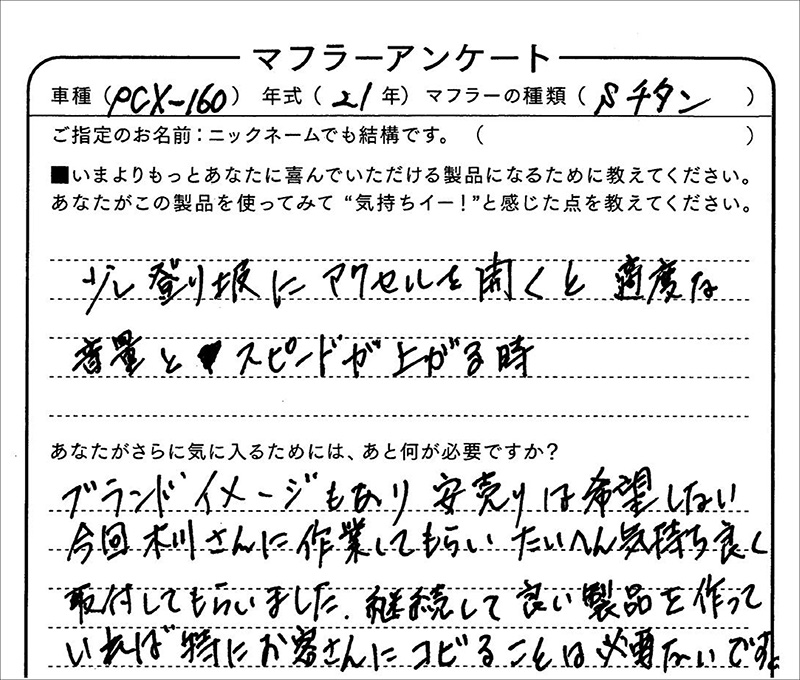 マフラーアンケート
車種（PCX-160） 年式（21年）マフラーの種類（Sチタン）
ご指定のお名前：ニックネームでも結構です。（　）
■いまよりもっとあなたに喜んでいただける製品になるために教えてください。
あなたがこの製品を使ってみて“気持ちイー！”と感じた点を教えてください。
少し登り坂にアクセルを開くと適度な
音量とスピードが上がる時
あなたがさらに気に入るためには、あと何が必要ですか？
ブランドイメージもあり安売りは希望しない
今回木川さんに作業してもらいたいへん気持ち良く
取付してもらいました。継続して良い製品を作って
いれば特にお客さんにコビることは必要ないです。